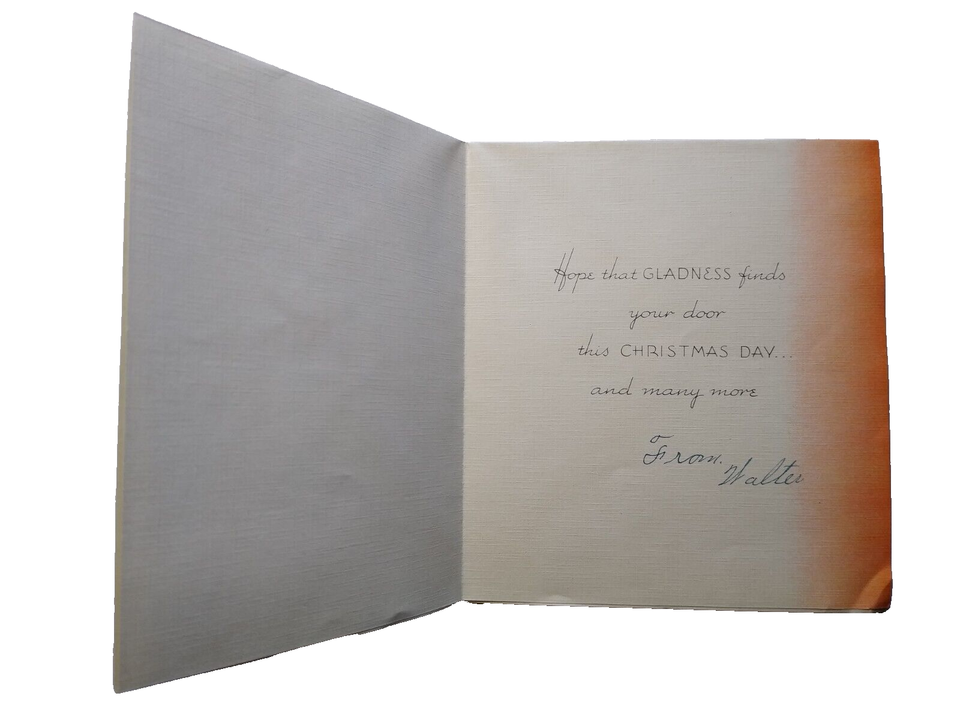 Hope that GLADNESS finds
your door
this CHRISTMAS DAY...
and many more
From.
Walter